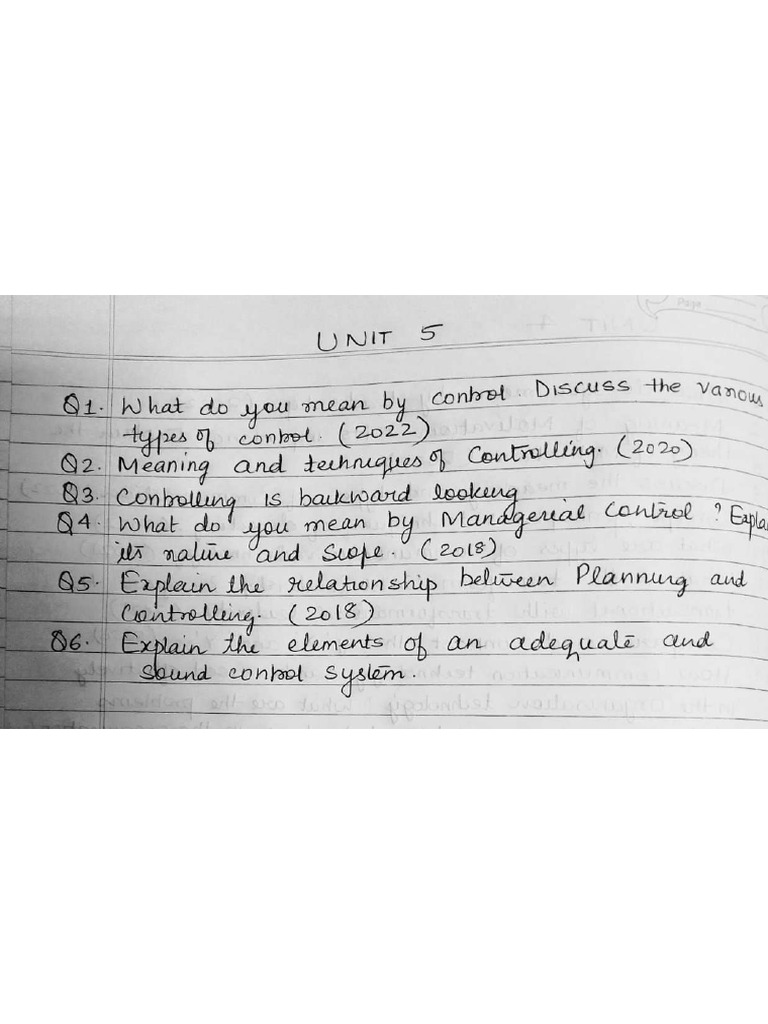 UNIT 5
Q1. What do you mean by control. Discuss the various
types of control. (2022)
Q2. Meaning and techniques of Controlling. (2020)
Q3. Controlling is backward looking
Q4. What do you mean by Managerial Control? Expla
its nature and Scope. (2018)
Q5. Explain the relationship between Planning and
Controlling. (2018)
Q6. Explain the elements of an adequate and
Sound control system.